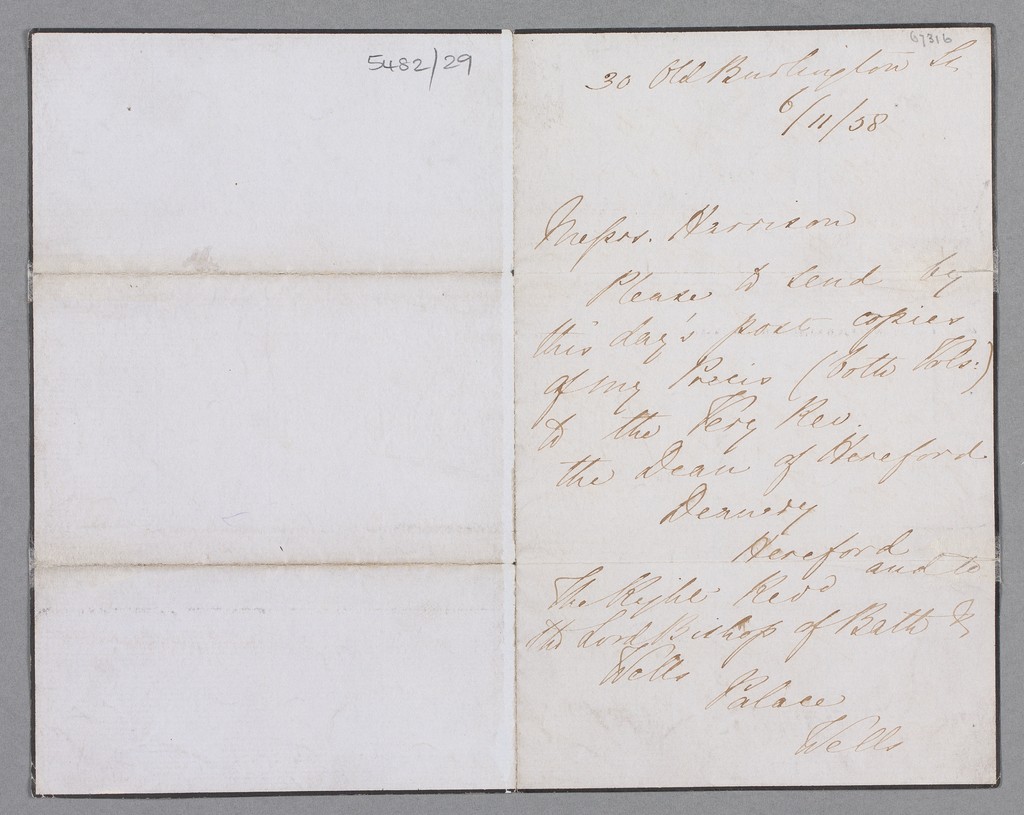 5482/29
67316
30 Old Burlington St.
6/11/58
Messrs. Harrison
Please to send by
this day's post copies
of my Precis (both Vols:)
to the Very Rev.
the Dean of Hereford
Deanery
Hereford
and to
The Right Revd
the Lord Bishop of Bath &
Wells
Palace
Wells